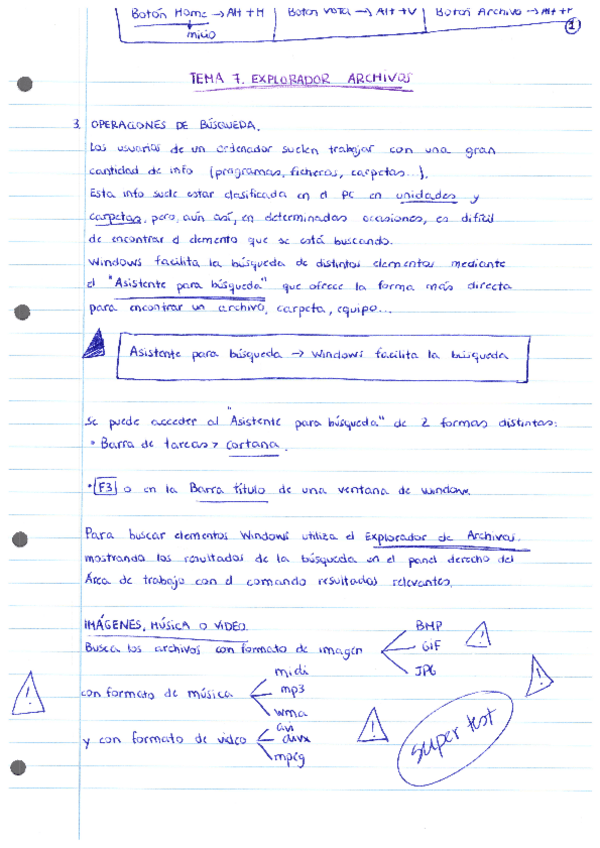 Botón Home → Alt + H | Botón Vista → Alt + V | Botón Archivo → Alt + F
inicio
1
TEMA 7. EXPLORADOR ARCHIVOS
3. OPERACIONES DE BÚSQUEDA.
Los usuarios de un ordenador suelen trabajar con una gran
cantidad de info (programas, ficheros, carpetas...).
Esta info suele estar clasificada en el PC en unidades y
carpetas, pero, aún así, en determinadas ocasiones, es difícil
de encontrar el elemento que se está buscando.
Windows facilita la búsqueda de distintos elementos mediante
el "Asistente para búsqueda" que ofrece la forma más directa
para encontrar un archivo, carpeta, equipo...
Asistente para búsqueda → Windows facilita la búsqueda
Se puede acceder al "Asistente para búsqueda" de 2 formas distintas:
• Barra de tareas > Cortana.
• F3 o en la Barra título de una ventana de Windows.
Para buscar elementos Windows utiliza el Explorador de Archivos,
mostrando los resultados de la búsqueda en el panel derecho del
Área de trabajo con el comando resultados relevantes.
IMÁGENES, MÚSICA O VIDEO.
Busca los archivos con formato de imagen
BMP
GIF
JPG
con formato de música
midi
mp3
wma
y con formato de video
avi
divx
mpeg
!
!
!
!
super test